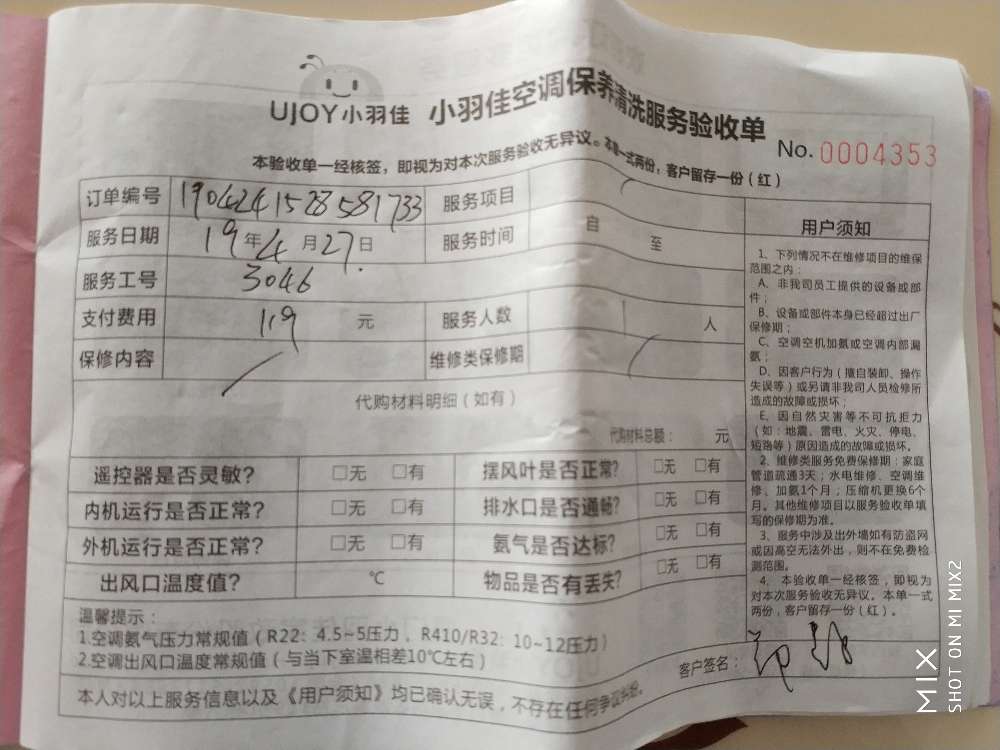 UJOY小羽佳 小羽佳空调保养清洗服务验收单
No. 0004353
本验收单一经核签，即视为对本次服务验收无异议。本单一式两份，客户留存一份（红）
订单编号 190424152858​1733 服务项目
服务日期 19年4月27日 服务时间 自 至
服务工号 3046
支付费用 119 元 服务人数 人
保修内容 维修类保修期
代购材料明细（如有）
代购材料总额： 元
遥控器是否灵敏？ □无 □有 摆风叶是否正常？ □无 □有
内机运行是否正常？ □无 □有 排水口是否通畅？ □无 □有
外机运行是否正常？ □无 □有 氨气是否达标？ □无 □有
出风口温度值？ ℃ 物品是否有丢失？ □无 □有
温馨提示：
1.空调氨气压力常规值（R22：4.5~5压力，R410/R32：10~12压力）
2.空调出风口温度常规值（与当下室温相差10℃左右）
本人对以上服务信息以及《用户须知》均已确认无误，不存在任何争议纠纷。
用户须知
1、下列情况不在维修项目的维保
范围之内：
A、非我司员工提供的设备或部
件；
B、设备或部件本身已经超过出厂
保修期；
C、空调空机加氨或空调内部漏
氨；
D、因客户行为（擅自装卸、操作
失误等）或另请非我司人员检修所
造成的故障或损坏；
E、因自然灾害等不可抗拒力
（如：地震、雷电、火灾、停电、
短路等）原因造成的故障或损坏。
2、维修类服务免费保修期：家庭
管道疏通3天；水电维修、空调维
修、加氨1个月；压缩机更换6个
月。其他维修项目以服务验收单填
写的保修期为准。
3、服务中涉及出外墙如有防盗网
或因高空无法外出，则不在免费检
测范围。
4、本验收单一经核签，即视为
对本次服务验收无异议。本单一式
两份，客户留存一份（红）。
客户签名：
MIX
SHOT ON MI MIX2